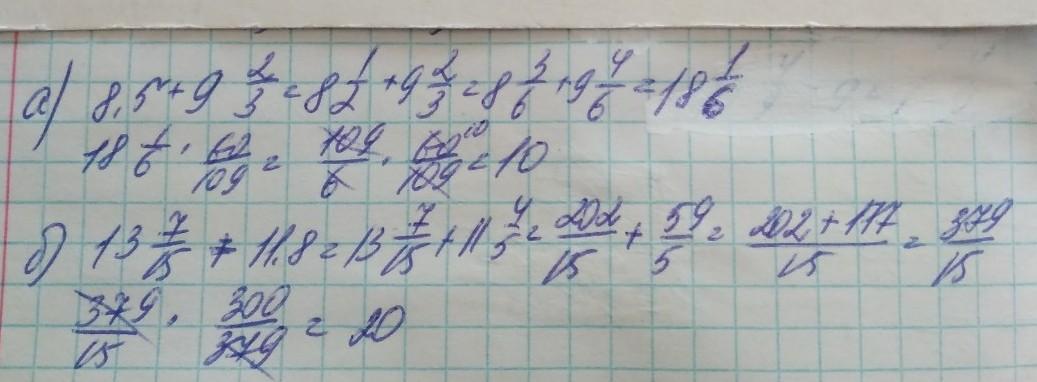 а) 8,5 + 9 2/3 = 8 1/2 + 9 2/3 = 8 3/6 + 9 4/6 = 18 1/6
18 1/6 · 60/109 = 109/6 · 60/109 10 = 10
б) 13 7/15 + 11,8 = 13 7/15 + 11 4/5 = 202/15 + 59/5 = 202 + 177/15 = 379/15
379/15 · 300/379 = 20